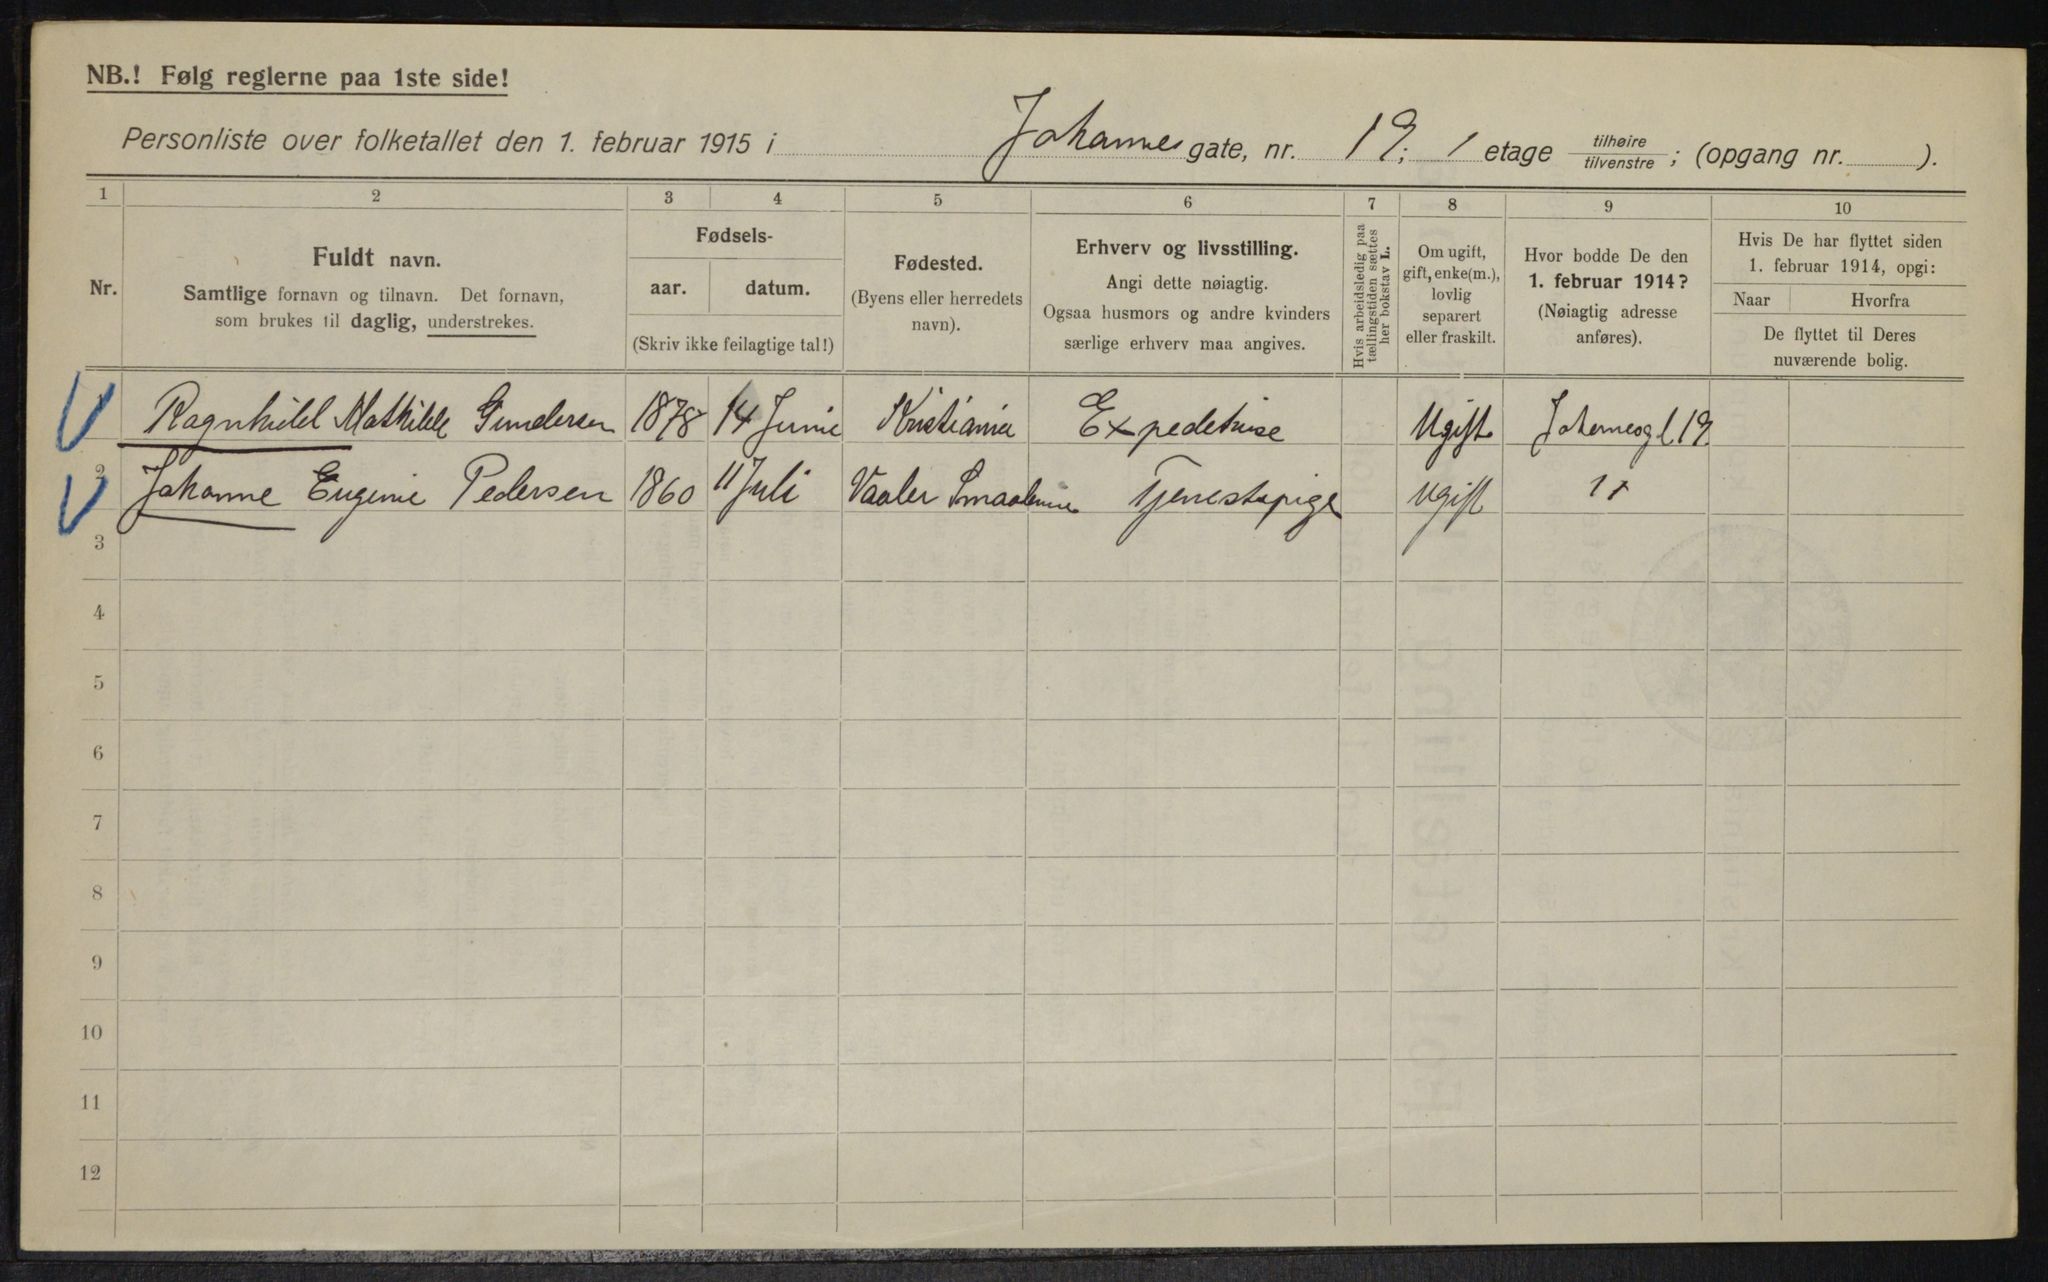 NB.! Følg reglerne paa 1ste side!
Personliste over folketallet den 1. februar 1915 i Johannes gate, nr. 19; 1 etage tilhøire tilvenstre ; (opgang nr. ).
1 2 3 4 5 6 7 8 9 10
Nr.
Fuldt navn.
Samtlige fornavn og tilnavn. Det fornavn,
som brukes til daglig, understrekes.
Fødsels-
aar. datum.
(Skriv ikke feilagtige tal!)
Fødested.
(Byens eller herredets
navn).
Erhverv og livsstilling.
Angi dette nøiagtig.
Ogsaa husmors og andre kvinders
særlige erhverv maa angives.
Hvis arbeidsledig paa
tællingstiden sættes
her bokstav L.
Om ugift,
gift, enke(m.),
lovlig
separert
eller fraskilt.
Hvor bodde De den
1. februar 1914?
(Nøiagtig adresse
anføres).
Hvis De har flyttet siden
1. februar 1914, opgi:
Naar Hvorfra
De flyttet til Deres
nuværende bolig.
Ragnhild Mathilde Gundersen 1878 14 Juni Kristiania Expeditrise Ugift Johannesgt 19
2 Johanne Eugenie Pedersen 1860 11 Juli Vaaler Smaalenene Tjenestepige Ugift
3
4
5
6
7
8
9
10
11
12